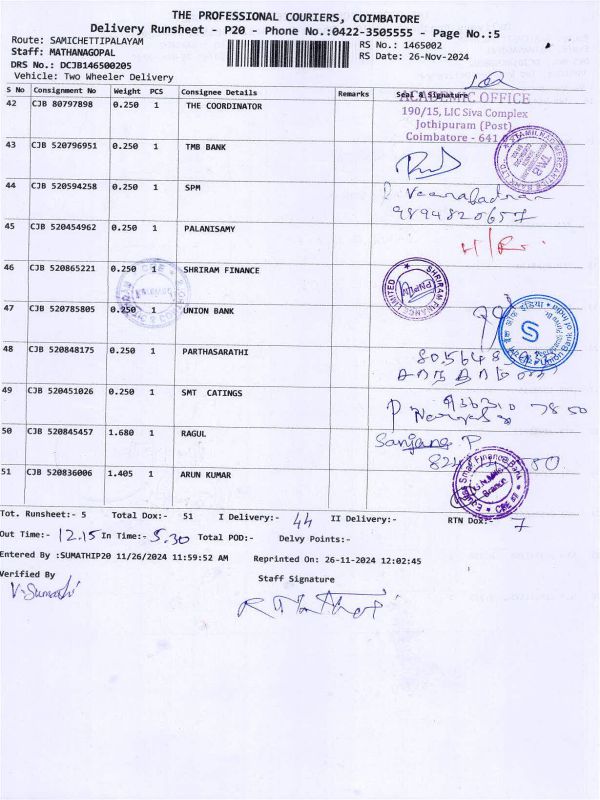 THE PROFESSIONAL COURIERS, COIMBATORE
Delivery Runsheet - P20 - Phone No.:0422-3505555 - Page No.:5
Route: SAMICHETTIPALAYAM RS No.: 1465002
Staff: MATHANAGOPAL RS Date: 26-Nov-2024
DRS No.: DCJB146500205
Vehicle: Two Wheeler Delivery
S No Consignment No Weight PCS Consignee Details Remarks Seal & Signature
ACADEMIC OFFICE
42 CJB 80797898 0.250 1 THE COORDINATOR
190/15, LIC Siva Complex
Jothipuram (Post)
Coimbatore - 641
43 CJB 520796951 0.250 1 TMB BANK
TAMILNAD MERCANTILE BANK LTD
TMB
44 CJB 520594258 0.250 1 SPM
P Veerabadran
9894820657
45 CJB 520454962 0.250 1 PALANISAMY
46 CJB 520865221 0.250 1 SHRIRAM FINANCE
SHRIRAM FINANCE LIMITED
PNPLM
47 CJB 520785805 0.250 1 UNION BANK
Union Bank of India
48 CJB 520848175 0.250 1 PARTHASARATHI
80564
49 CJB 520451026 0.250 1 SMT CATINGS
7850
50 CJB 520845457 1.680 1 RAGUL
Sanjana P
51 CJB 520836006 1.405 1 ARUN KUMAR
Small Finance Bank
Branch
CBE
Tot. Runsheet:- 5 Total Dox:- 51 I Delivery:- 44 II Delivery:- RTN Dox:- 7
Out Time:- 12.15 In Time:- 5.30 Total POD:- Delvy Points:-
Entered By :SUMATHIP20 11/26/2024 11:59:52 AM Reprinted On: 26-11-2024 12:02:45
Verified By Staff Signature
V. Sumathi